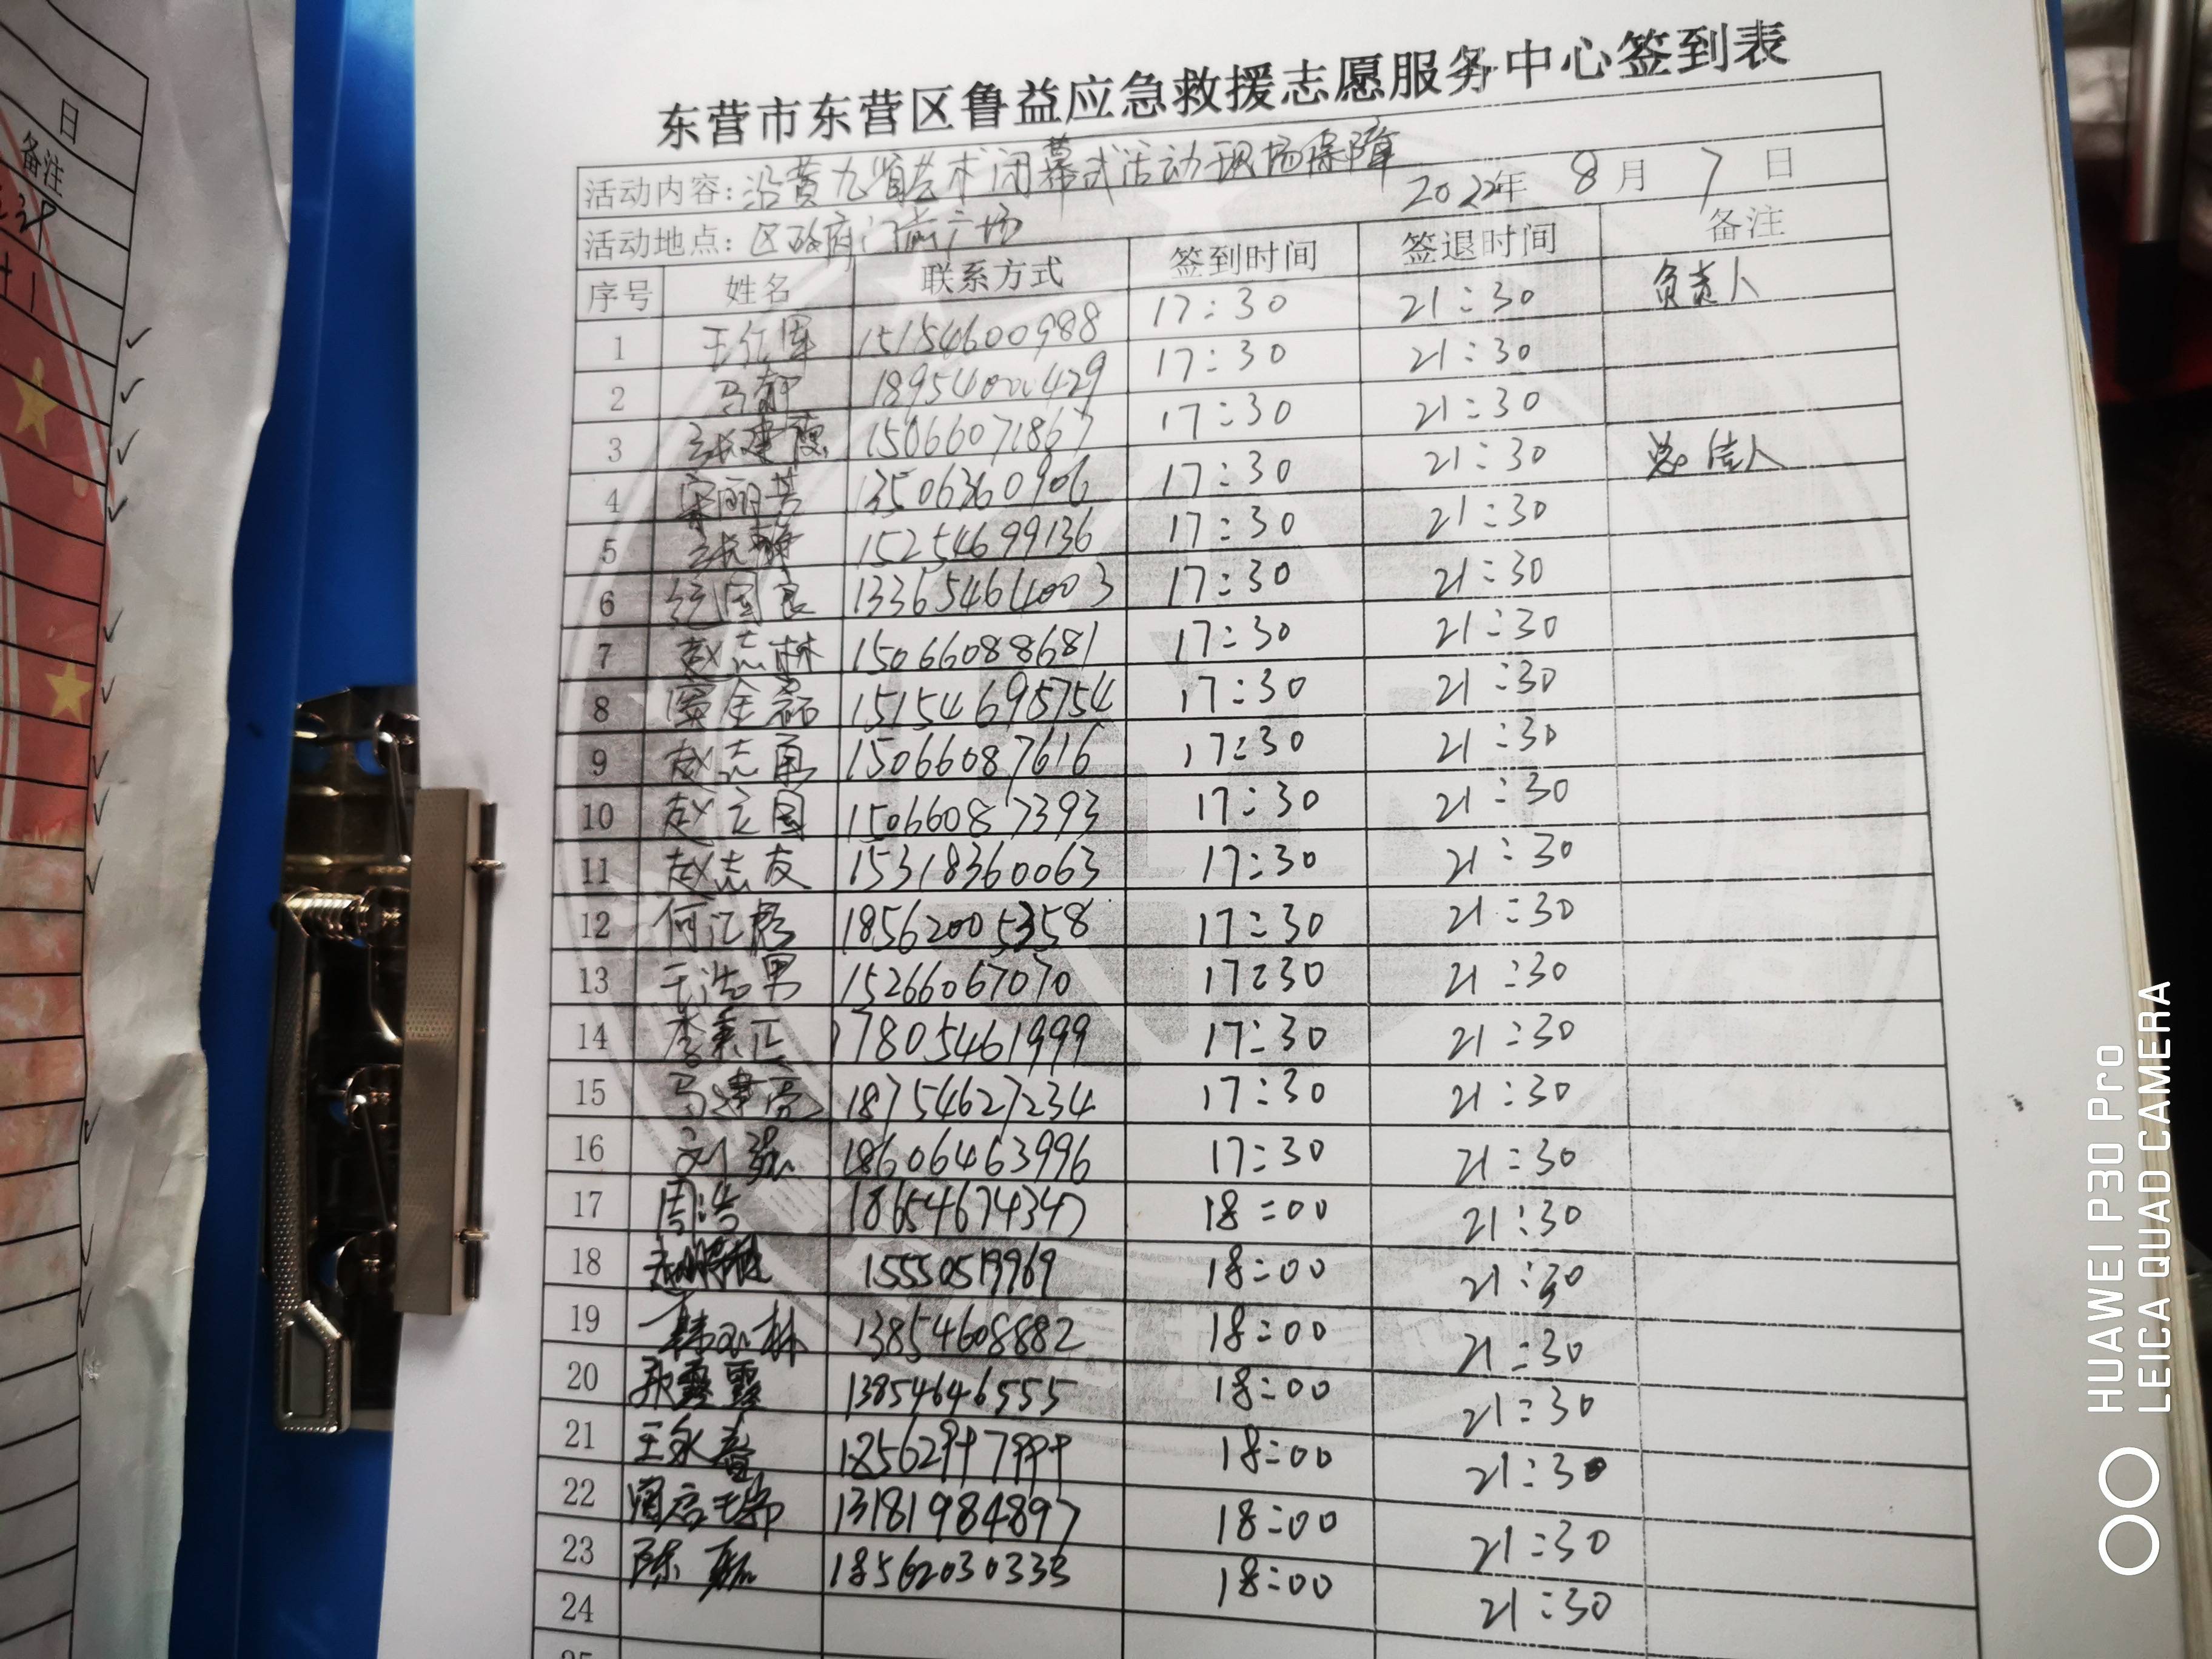 日
备注
东营市东营区鲁益应急救援志愿服务中心签到表
活动内容:沿黄九省艺术闭幕式活动现场保障 2022年 8月 7日
活动地点:区政府门前广场
序号 姓名 联系方式 签到时间 签退时间 备注
1 15154600988 17:30 21:30 负责人
2 18954000429 17:30 21:30
3 张建霞 15066071867 17:30 21:30
4 宋丽芳 13506360906 17:30 21:30 总结人
5 张静 15254699136 17:30 21:30
6 国良 13365464003 17:30 21:30
7 赵志林 15066088681 17:30 21:30
8 金磊 15154695754 17:30 21:30
9 赵志勇 15066087616 17:30 21:30
10 赵立国 15066087393 17:30 21:30
11 赵志友 15318360063 17:30 21:30
12 何江 18562005358 17:30 21:30
13 王浩男 15266067070 17:30 21:30
14 李秉正 17805461999 17:30 21:30
15 马建 18754627234 17:30 21:30
16 刘强 18606463996 17:30 21:30
17 周浩 18654674347 18:00 21:30
18 15550519969 18:00 21:30
19 韩小林 13854608882 18:00 21:30
20 张露露 13854646555 18:00 21:30
21 王永春 18:00 21:30
22 13181984897 18:00 21:30
23 陈 18562030333 18:00 21:30
24
25
HUAWEI P30 Pro
LEICA QUAD CAMERA